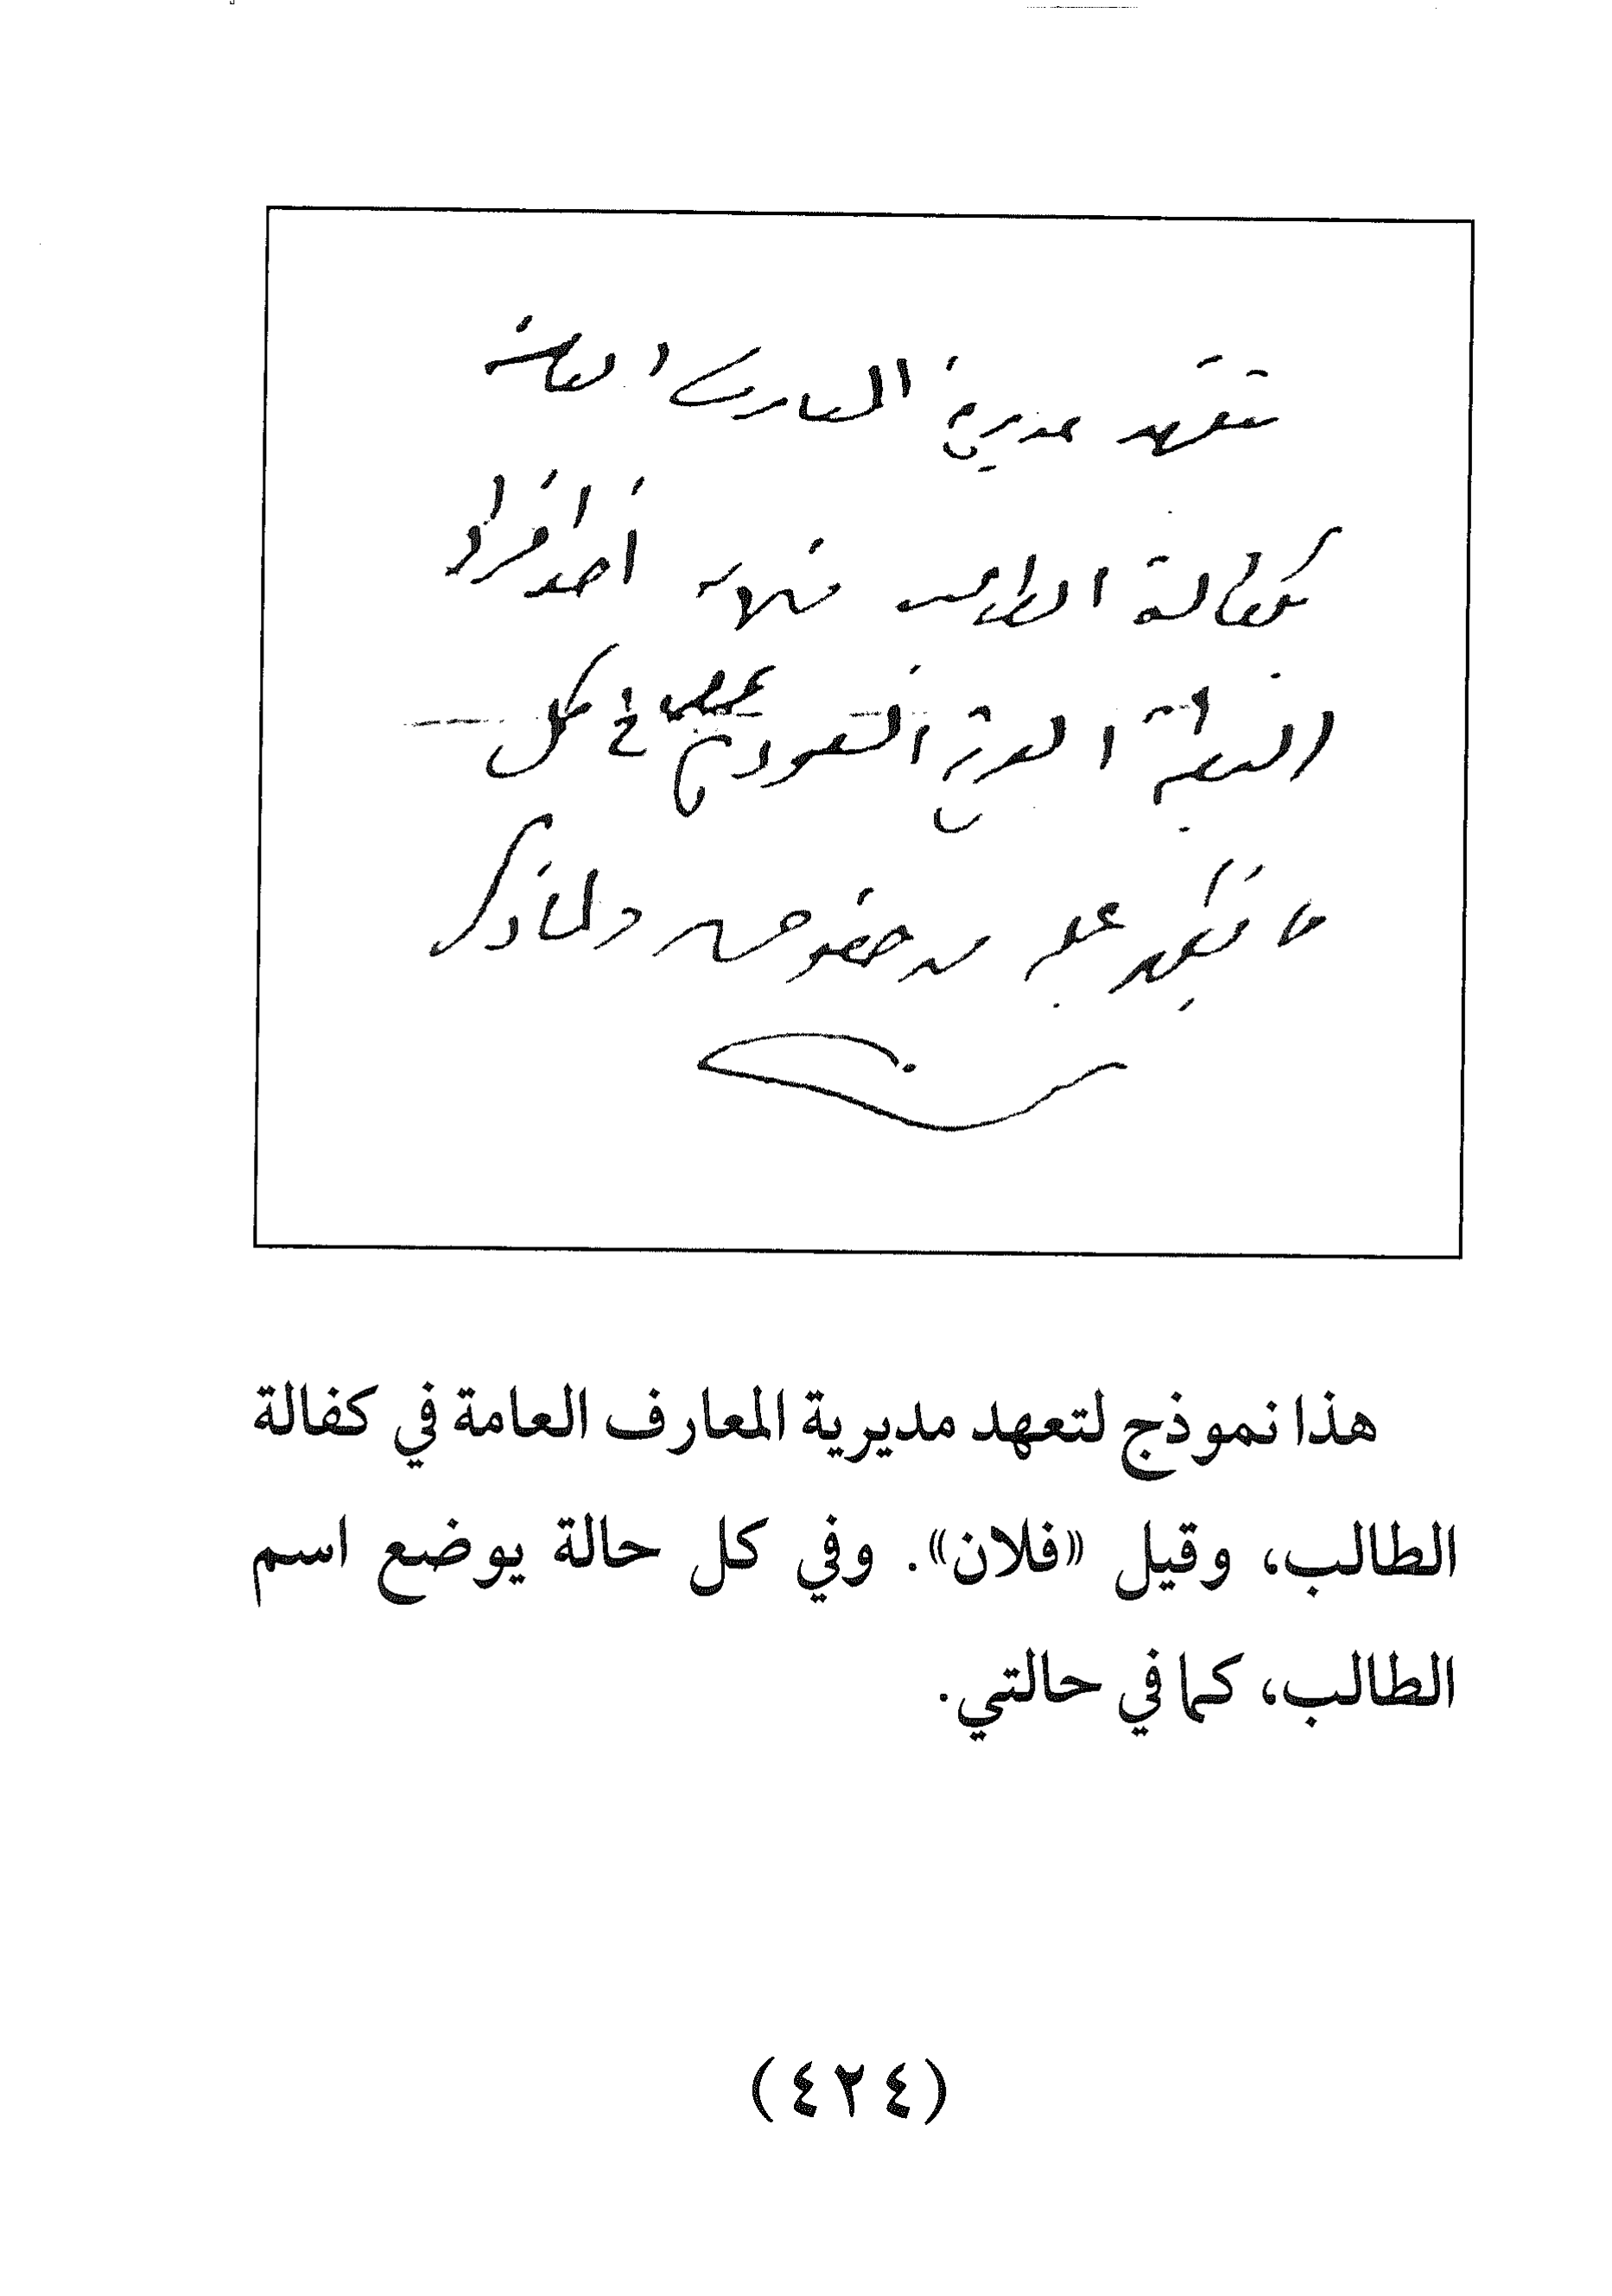 تتعهد مديرية المعارف العامة
بكفالة الطالب فلان أحد أفراد
البعثة العربية السعودية بمصر في كل
ما تعهد عليه من حقوق ولما ذكر
هذا نموذج لتعهد مديرية المعارف العامة في كفالة
الطالب، وقيل «فلان». وفي كل حالة يوضع اسم
الطالب، كما في حالتي.
(٤٢٤)